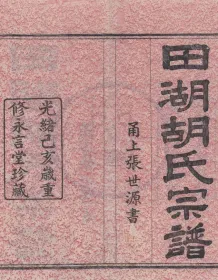 田湖胡氏宗譜
甬上張世源書
光緒己亥歲重
修永言堂珍藏